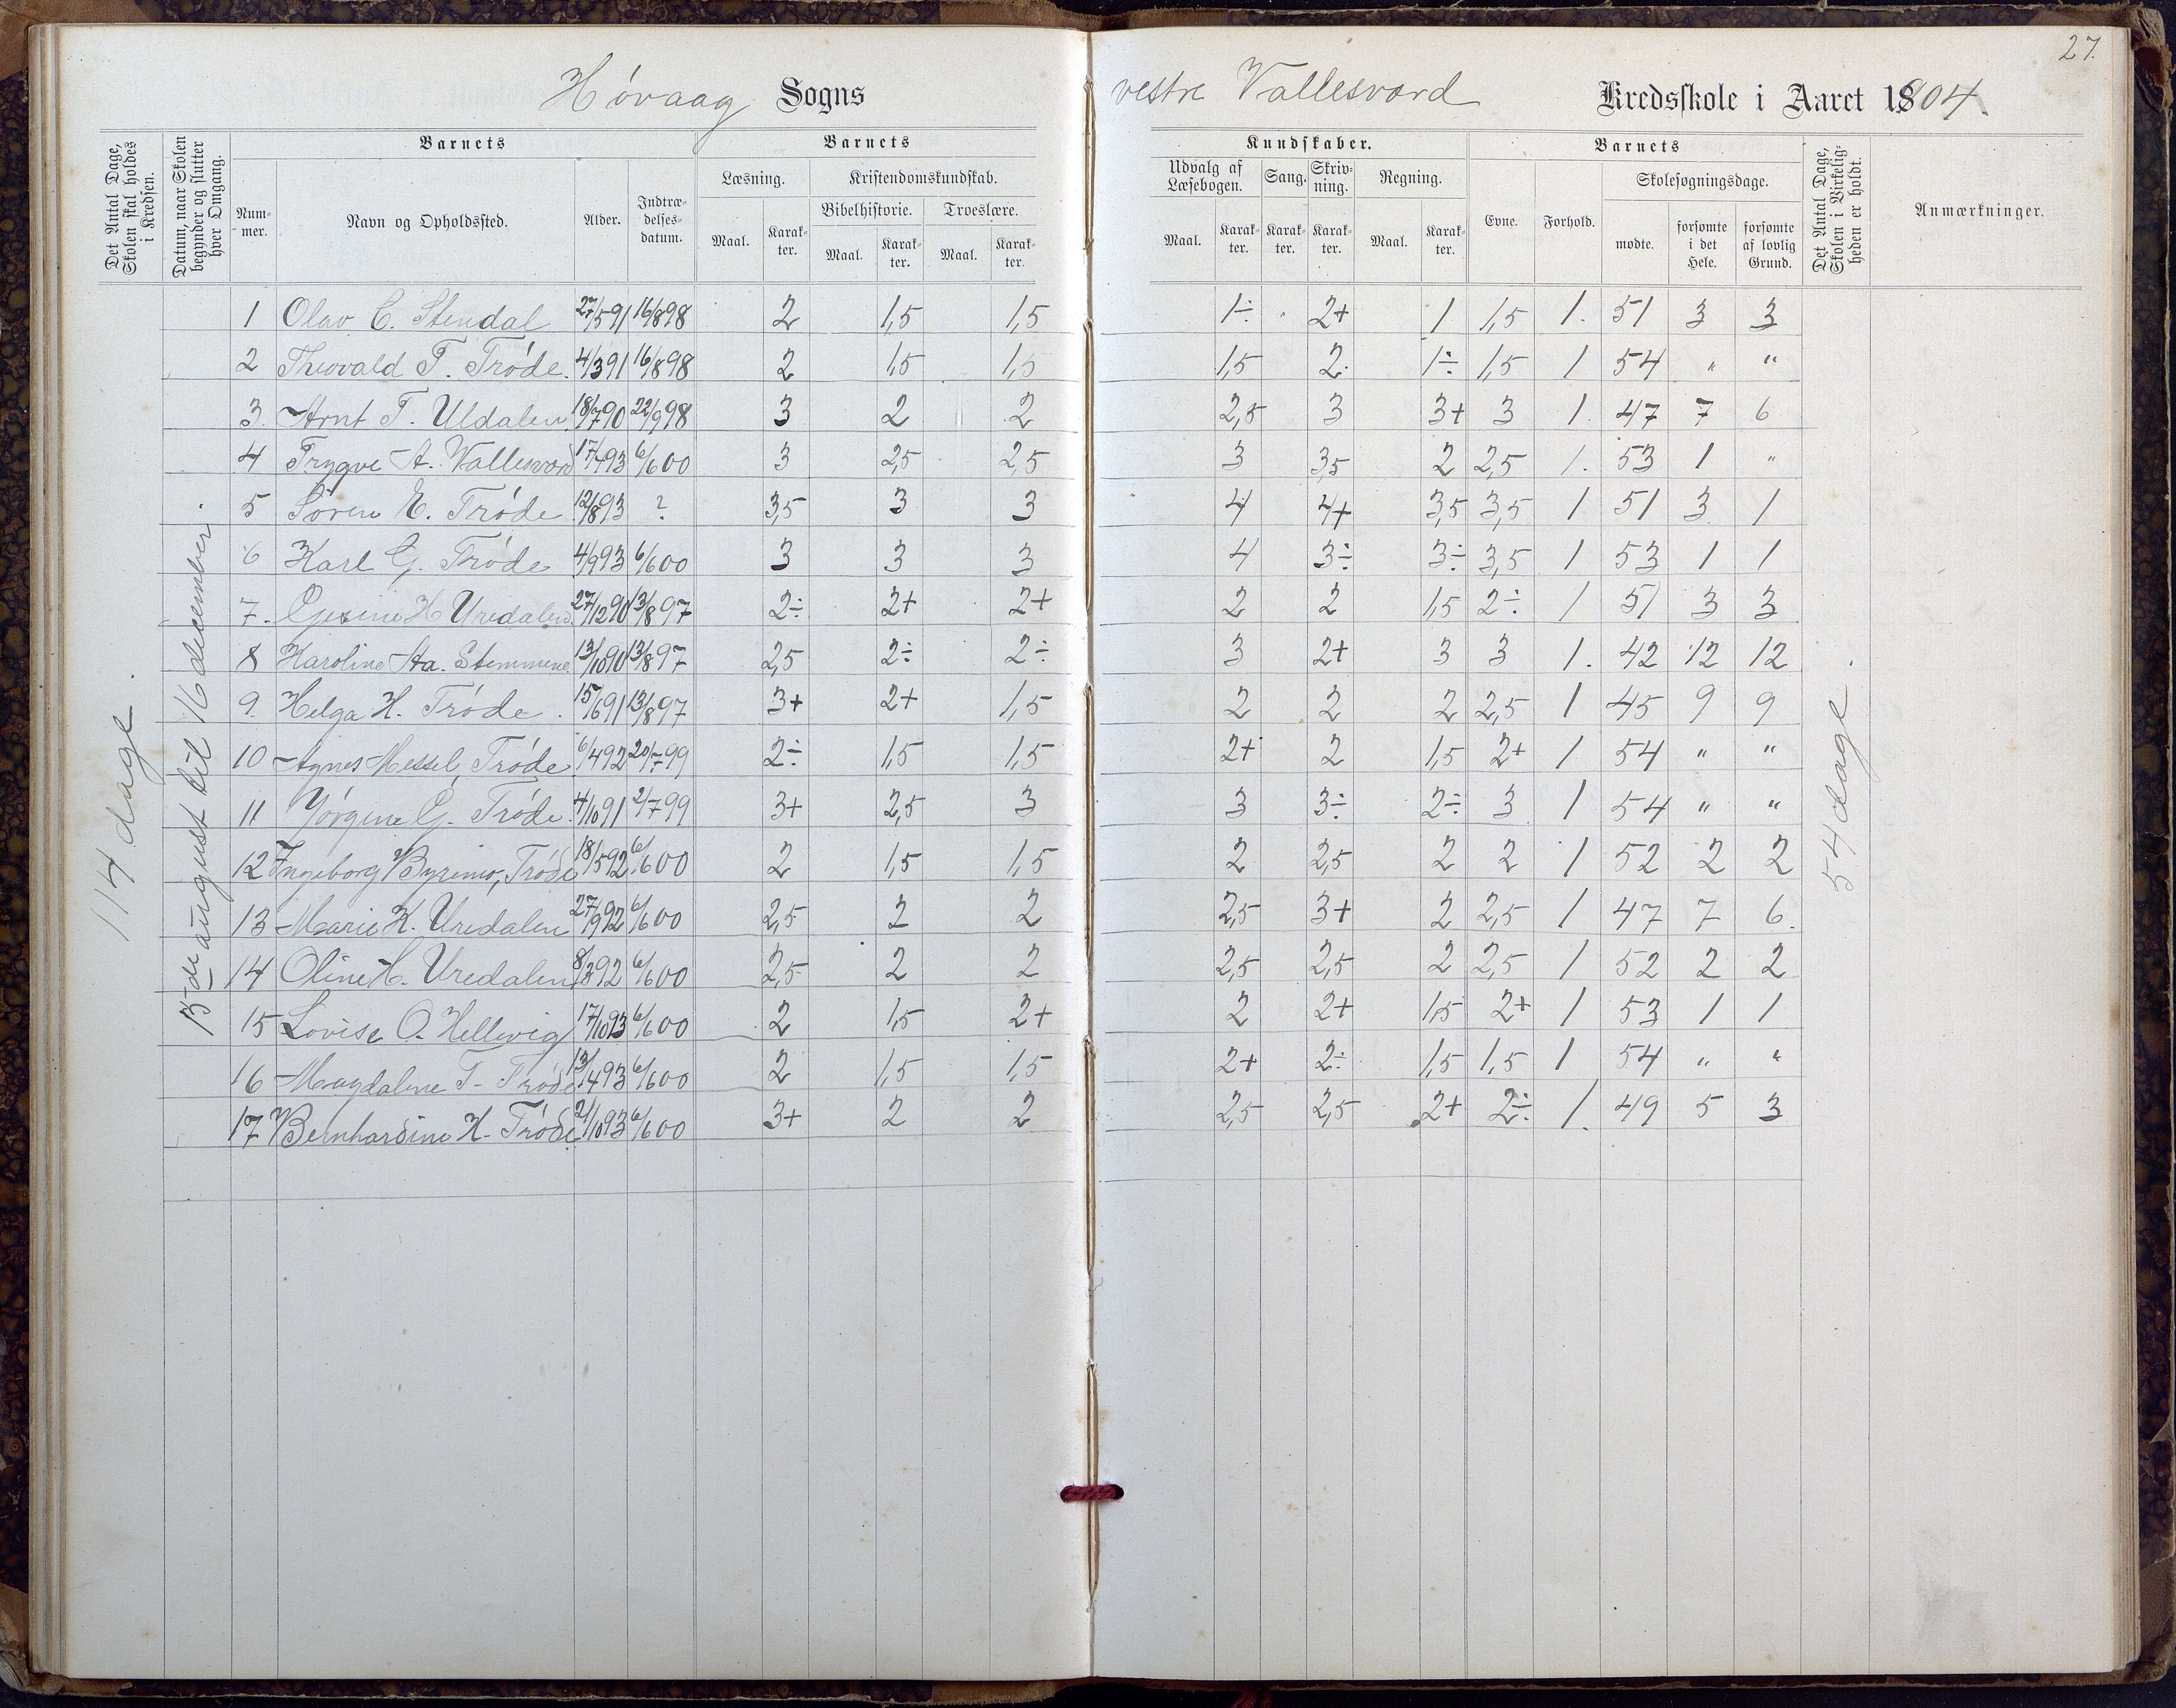 27.
Høvaag Sogns vestre Vallesverd Kredsskole i Aaret 1904.
Det Antal Dage, Skolen skal holdes i Kredsen.
Datum, naar Skolen begynder og slutter hver Omgang.
Barnets
Nummer.
Navn og Opholdssted.
Alder.
Indtrædelsesdatum.
Barnets
Læsning.
Maal.
Karakter.
Kristendomskundskab.
Bibelhistorie.
Maal.
Karakter.
Troeslære.
Maal.
Karakter.
Kundskaber.
Udvalg af Læsebogen.
Maal.
Karakter.
Sang.
Karakter.
Skrivning.
Karakter.
Regning.
Maal.
Karakter.
Barnets
Evne.
Forhold.
Skolesøgningsdage.
mødte.
forsømte i det Hele.
forsømte af lovlig Grund.
Det Antal Dage, Skolen i Virkeligheden er holdt.
Anmærkninger.
114 dage.
15de august til 16 december.
1 Olav C. Stendal 27/5 91 16/8 98 2 1,5 1,5 1÷ 2+ 1 1,5 1. 51 3 3
2 Thorvald T. Trøde. 4/3 91 16/8 98 2 1,5 1,5 1,5 2. 1÷ 1,5 1 54 " "
3. Arnt T. Uldalen 18/7 90 22/9 98 3 2 2 2,5 3 3+ 3 1. 47 7 6
4 Trygve A. Vallesverd 17/7 93 6/6 00 3 2,5 2,5 3 3,5 2 2,5 1. 53 1 "
5 Søren E. Trøde 12/8 93 ? 3,5 3 3 4 4+ 3,5 3,5 1 51 3 1
6 Karl G. Trøde 4/9 93 6/6 00 3 3 3 4 3÷ 3÷ 3,5 1 53 1 1
7. Gesine H Uredalen. 27/12 90 13/8 97 2÷ 2+ 2+ 2 2 1,5 2÷ 1 51 3 3
8 Karoline Aa. Stemmene 13/10 90 13/8 97 2,5 2÷ 2÷ 3 2+ 3 3 1. 42 12 12
9. Helga H. Trøde. 15/6 91 13/8 97 3+ 2+ 1,5 2 2 2 2,5 1 45 9 9
10 Agnes Messel, Trøde 6/4 92 20/7 99 2÷ 1,5 1,5 2+ 2 1,5 2+ 1 54 " "
11 Jørgine G. Trøde. 4/10 91 2/7 99 3+ 2,5 3 3 3÷ 2÷ 3 1 54 " "
12 Ingeborg Byremo, Trøde 18/5 92 6/6 00 2 1,5 1,5 2 2,5 2 2 1 52 2 2
13 Marie K. Uredalen 27/9 92 6/6 00 2,5 2 2 2,5 3+ 2 2,5 1 47 7 6.
14 Oline H. Uredalen 8/3 92 6/6 00 2,5 2 2 2,5 2,5 2 2,5 1 52 2 2
15 Lovise O. Hellevig 17/10 93 6/6 00 2 1,5 2+ 2 2+ 1,5 2+ 1 53 1 1
16 Magdalene T. Trøde 13/4 93 6/6 00 2 1,5 1,5 2+ 2÷ 1,5 1,5 1 54 " "
17 Bernhardine H. Trøde 21/10 93 6/6 00 3+ 2 2 2,5 2,5 2+ 2÷ 1. 49 5 3
54 dage.